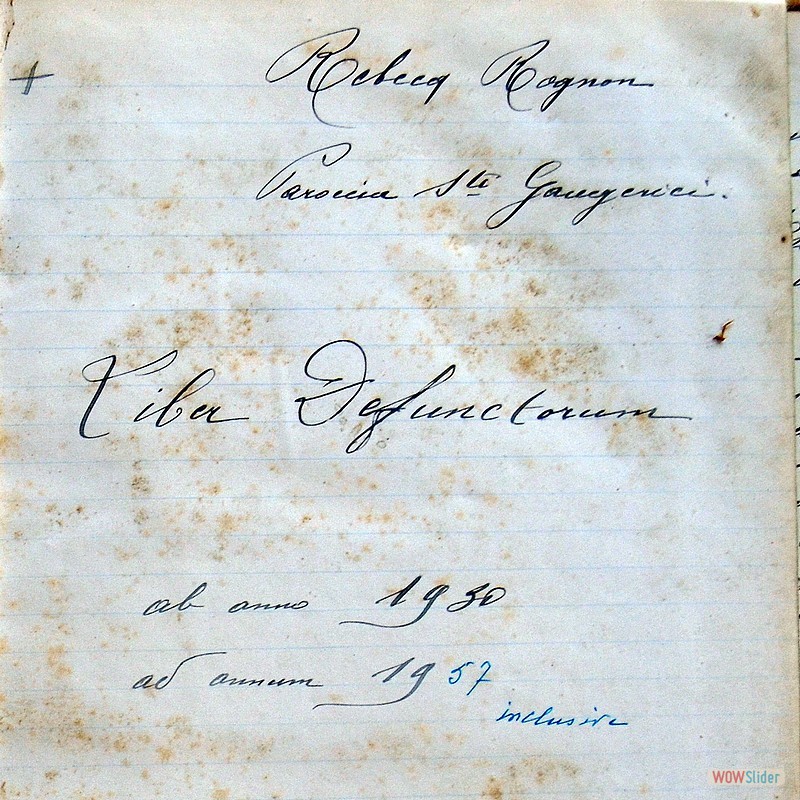 +
Rebecq Rognon
Parocia Sti Gaugerici.
Liber Defunctorum
ab anno 1930
ad annum 1957
inclusive
WOWSlider